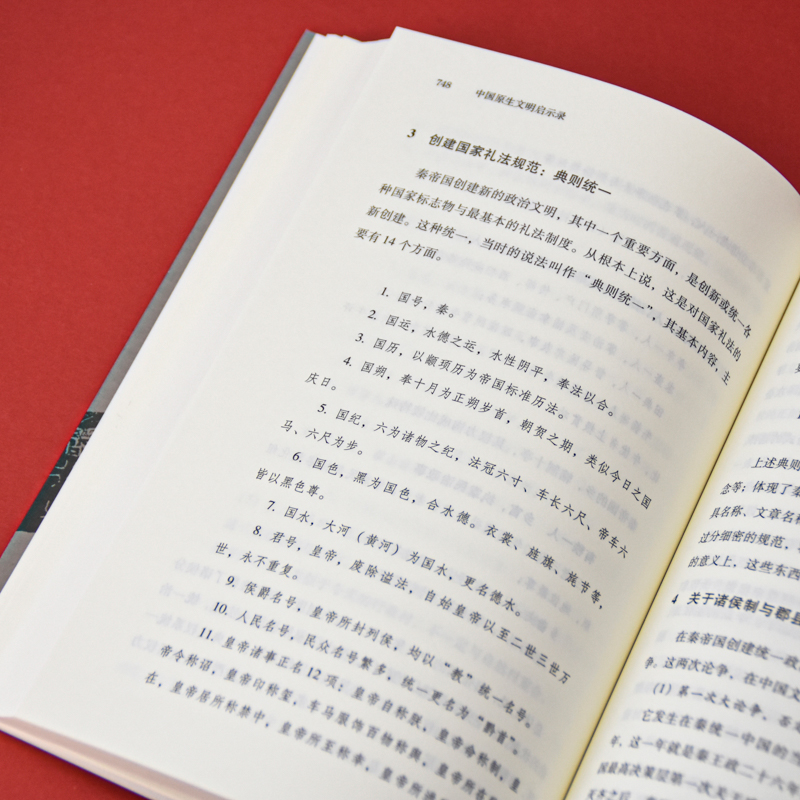 748 中国原生文明启示录
3 创建国家礼法规范：典则统一
秦帝国创建新的政治文明，其中一个重要方面，是创新或统一各
种国家标志物与最基本的礼法制度。从根本上说，这是对国家礼法的
新创建。这种统一，当时的说法叫作“典则统一”，其基本内容，主
要有14个方面。
1. 国号，秦。
2. 国运，水德之运，水性阴平，奉法以合。
3. 国历，以颛顼历为帝国标准历法。
4. 国朔，奉十月为正朔岁首，朝贺之期，类似今日之国
庆日。
5. 国纪，六为诸物之纪，法冠六寸、车长六尺、帝车六
马、六尺为步。
6. 国色，黑为国色，合水德。衣裳、旌旗、旄节等，
皆以黑色尊。
7. 国水，大河（黄河）为国水，更名德水。
8. 君号，皇帝，废除谥法，自始皇帝以至二世三世万
世，永不重复。
9. 侯爵名号，皇帝所封列侯，均以“教”统一名号。
10. 人民名号，民众名号繁多，统一更名为“黔首”。
11. 皇帝诸事正名12项：皇帝自称朕，皇帝命称制，皇
帝令称诏，皇帝印称玺，车马服饰百物称舆，皇帝所在称行
在，皇帝居所称禁中，皇帝所至称幸，皇帝所
上述典则
念等；体现了秦
具名称、文章名称
过分细密的规范，
的意义上，这些东西
4 关于诸侯制与郡县
在秦帝国创建统一政
争。这两次论争，在中国文
（1）第一次大论争，
它发生在秦统一中国的当
年，这一年就是秦王政二十六年
国最高决策层第一次关于